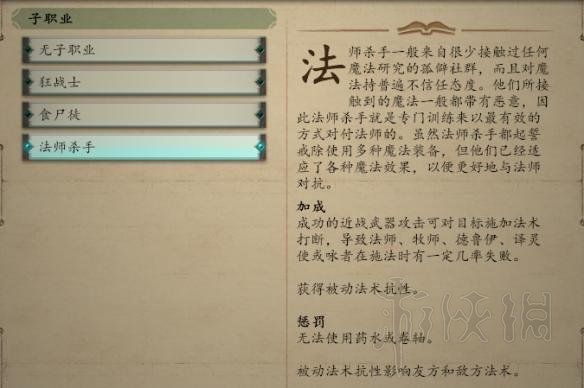 子职业
无子职业
狂战士
食尸徒
法师杀手
法师杀手一般来自很少接触过任何
魔法研究的孤僻社群，而且对魔
法持普遍不信任态度。他们所接
触到的魔法一般都带有恶意，因
此法师杀手就是专门训练来以最有效的
方式对付法师的。虽然法师杀手都起誓
戒除使用多种魔法装备，但他们已经适
应了各种魔法效果，以便更好地与法师
对抗。
加成
成功的近战武器攻击可对目标施加法术
打断，导致法师、牧师、德鲁伊、译灵
使或咏者在施法时有一定几率失败。
获得被动法术抗性。
惩罚
无法使用药水或卷轴。
被动法术抗性影响友方和敌方法术。
游侠网